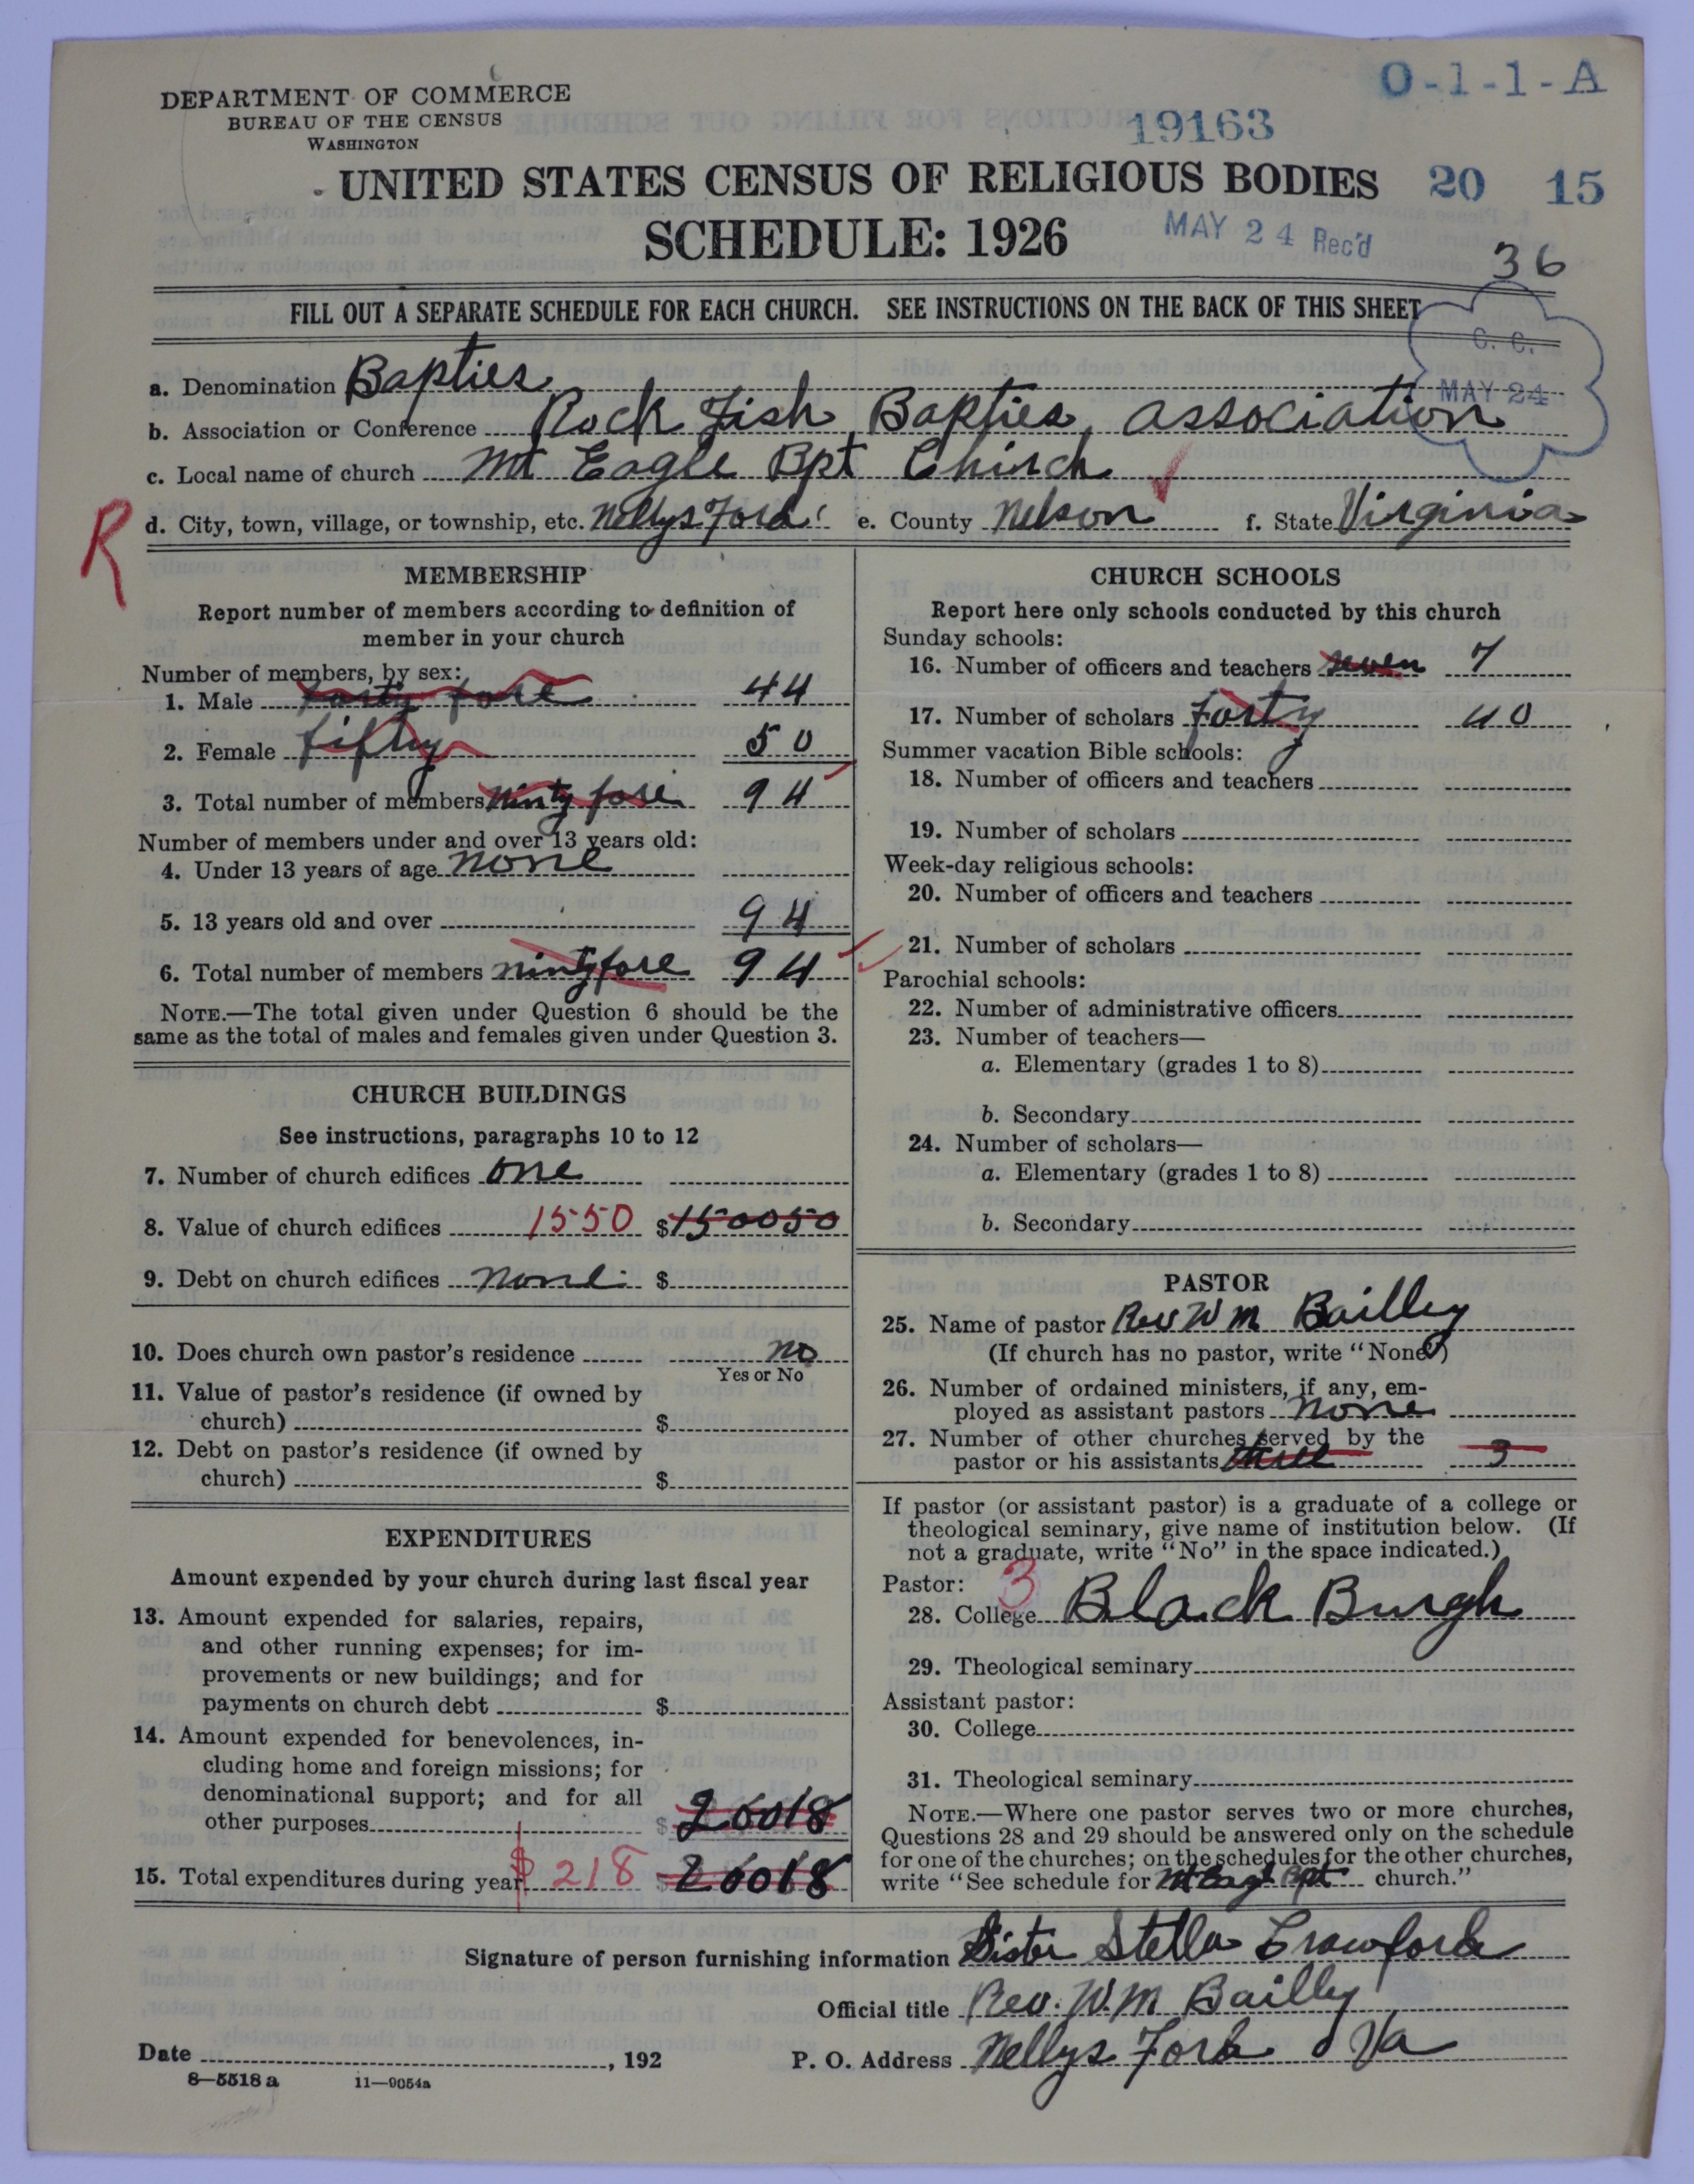 DEPARTMENT OF COMMERCE
BUREAU OF THE CENSUS
WASHINGTON
O-1-1-A
19163
UNITED STATES CENSUS OF RELIGIOUS BODIES
20 15
SCHEDULE: 1926
MAY 24 Rec'd
36
FILL OUT A SEPARATE SCHEDULE FOR EACH CHURCH. SEE INSTRUCTIONS ON THE BACK OF THIS SHEET
C. C.
MAY 24
a. Denomination Bapties
b. Association or Conference Rock Fish Bapties, association
c. Local name of church Mt Eagle Bpt Chirch
R
d. City, town, village, or township, etc. Nellys Ford e. County Nelson f. State Virginia
MEMBERSHIP
Report number of members according to definition of
member in your church
Number of members, by sex:
1. Male forty fore 44
2. Female fifty 50
3. Total number of members ninty fore 94
Number of members under and over 13 years old:
4. Under 13 years of age none
5. 13 years old and over 94
6. Total number of members nintyfore 94
NOTE.—The total given under Question 6 should be the
same as the total of males and females given under Question 3.
CHURCH BUILDINGS
See instructions, paragraphs 10 to 12
7. Number of church edifices one
8. Value of church edifices 1550 $150050
9. Debt on church edifices none $
10. Does church own pastor's residence no
Yes or No
11. Value of pastor's residence (if owned by
church) $
12. Debt on pastor's residence (if owned by
church) $
EXPENDITURES
Amount expended by your church during last fiscal year
13. Amount expended for salaries, repairs,
and other running expenses; for im-
provements or new buildings; and for
payments on church debt $
14. Amount expended for benevolences, in-
cluding home and foreign missions; for
denominational support; and for all
other purposes $ 20018
15. Total expenditures during year $218 $ 20018
CHURCH SCHOOLS
Report here only schools conducted by this church
Sunday schools:
16. Number of officers and teachers seven 7
17. Number of scholars forty 40
Summer vacation Bible schools:
18. Number of officers and teachers
19. Number of scholars
Week-day religious schools:
20. Number of officers and teachers
21. Number of scholars
Parochial schools:
22. Number of administrative officers
23. Number of teachers—
a. Elementary (grades 1 to 8)
b. Secondary
24. Number of scholars—
a. Elementary (grades 1 to 8)
b. Secondary
PASTOR
25. Name of pastor Rev W M Bailley
(If church has no pastor, write "None")
26. Number of ordained ministers, if any, em-
ployed as assistant pastors none
27. Number of other churches served by the
pastor or his assistants three 3
If pastor (or assistant pastor) is a graduate of a college or
theological seminary, give name of institution below. (If
not a graduate, write "No" in the space indicated.)
Pastor: 3
28. College Black Burgh
29. Theological seminary
Assistant pastor:
30. College
31. Theological seminary
NOTE.—Where one pastor serves two or more churches,
Questions 28 and 29 should be answered only on the schedule
for one of the churches; on the schedules for the other churches,
write "See schedule for Mt Eagl Bpt church."
Signature of person furnishing information Sister Stella Crawford
Official title Rev. W. M Bailley
Date , 192
P. O. Address Nellys Ford Va
8—5518 a 11—9054a